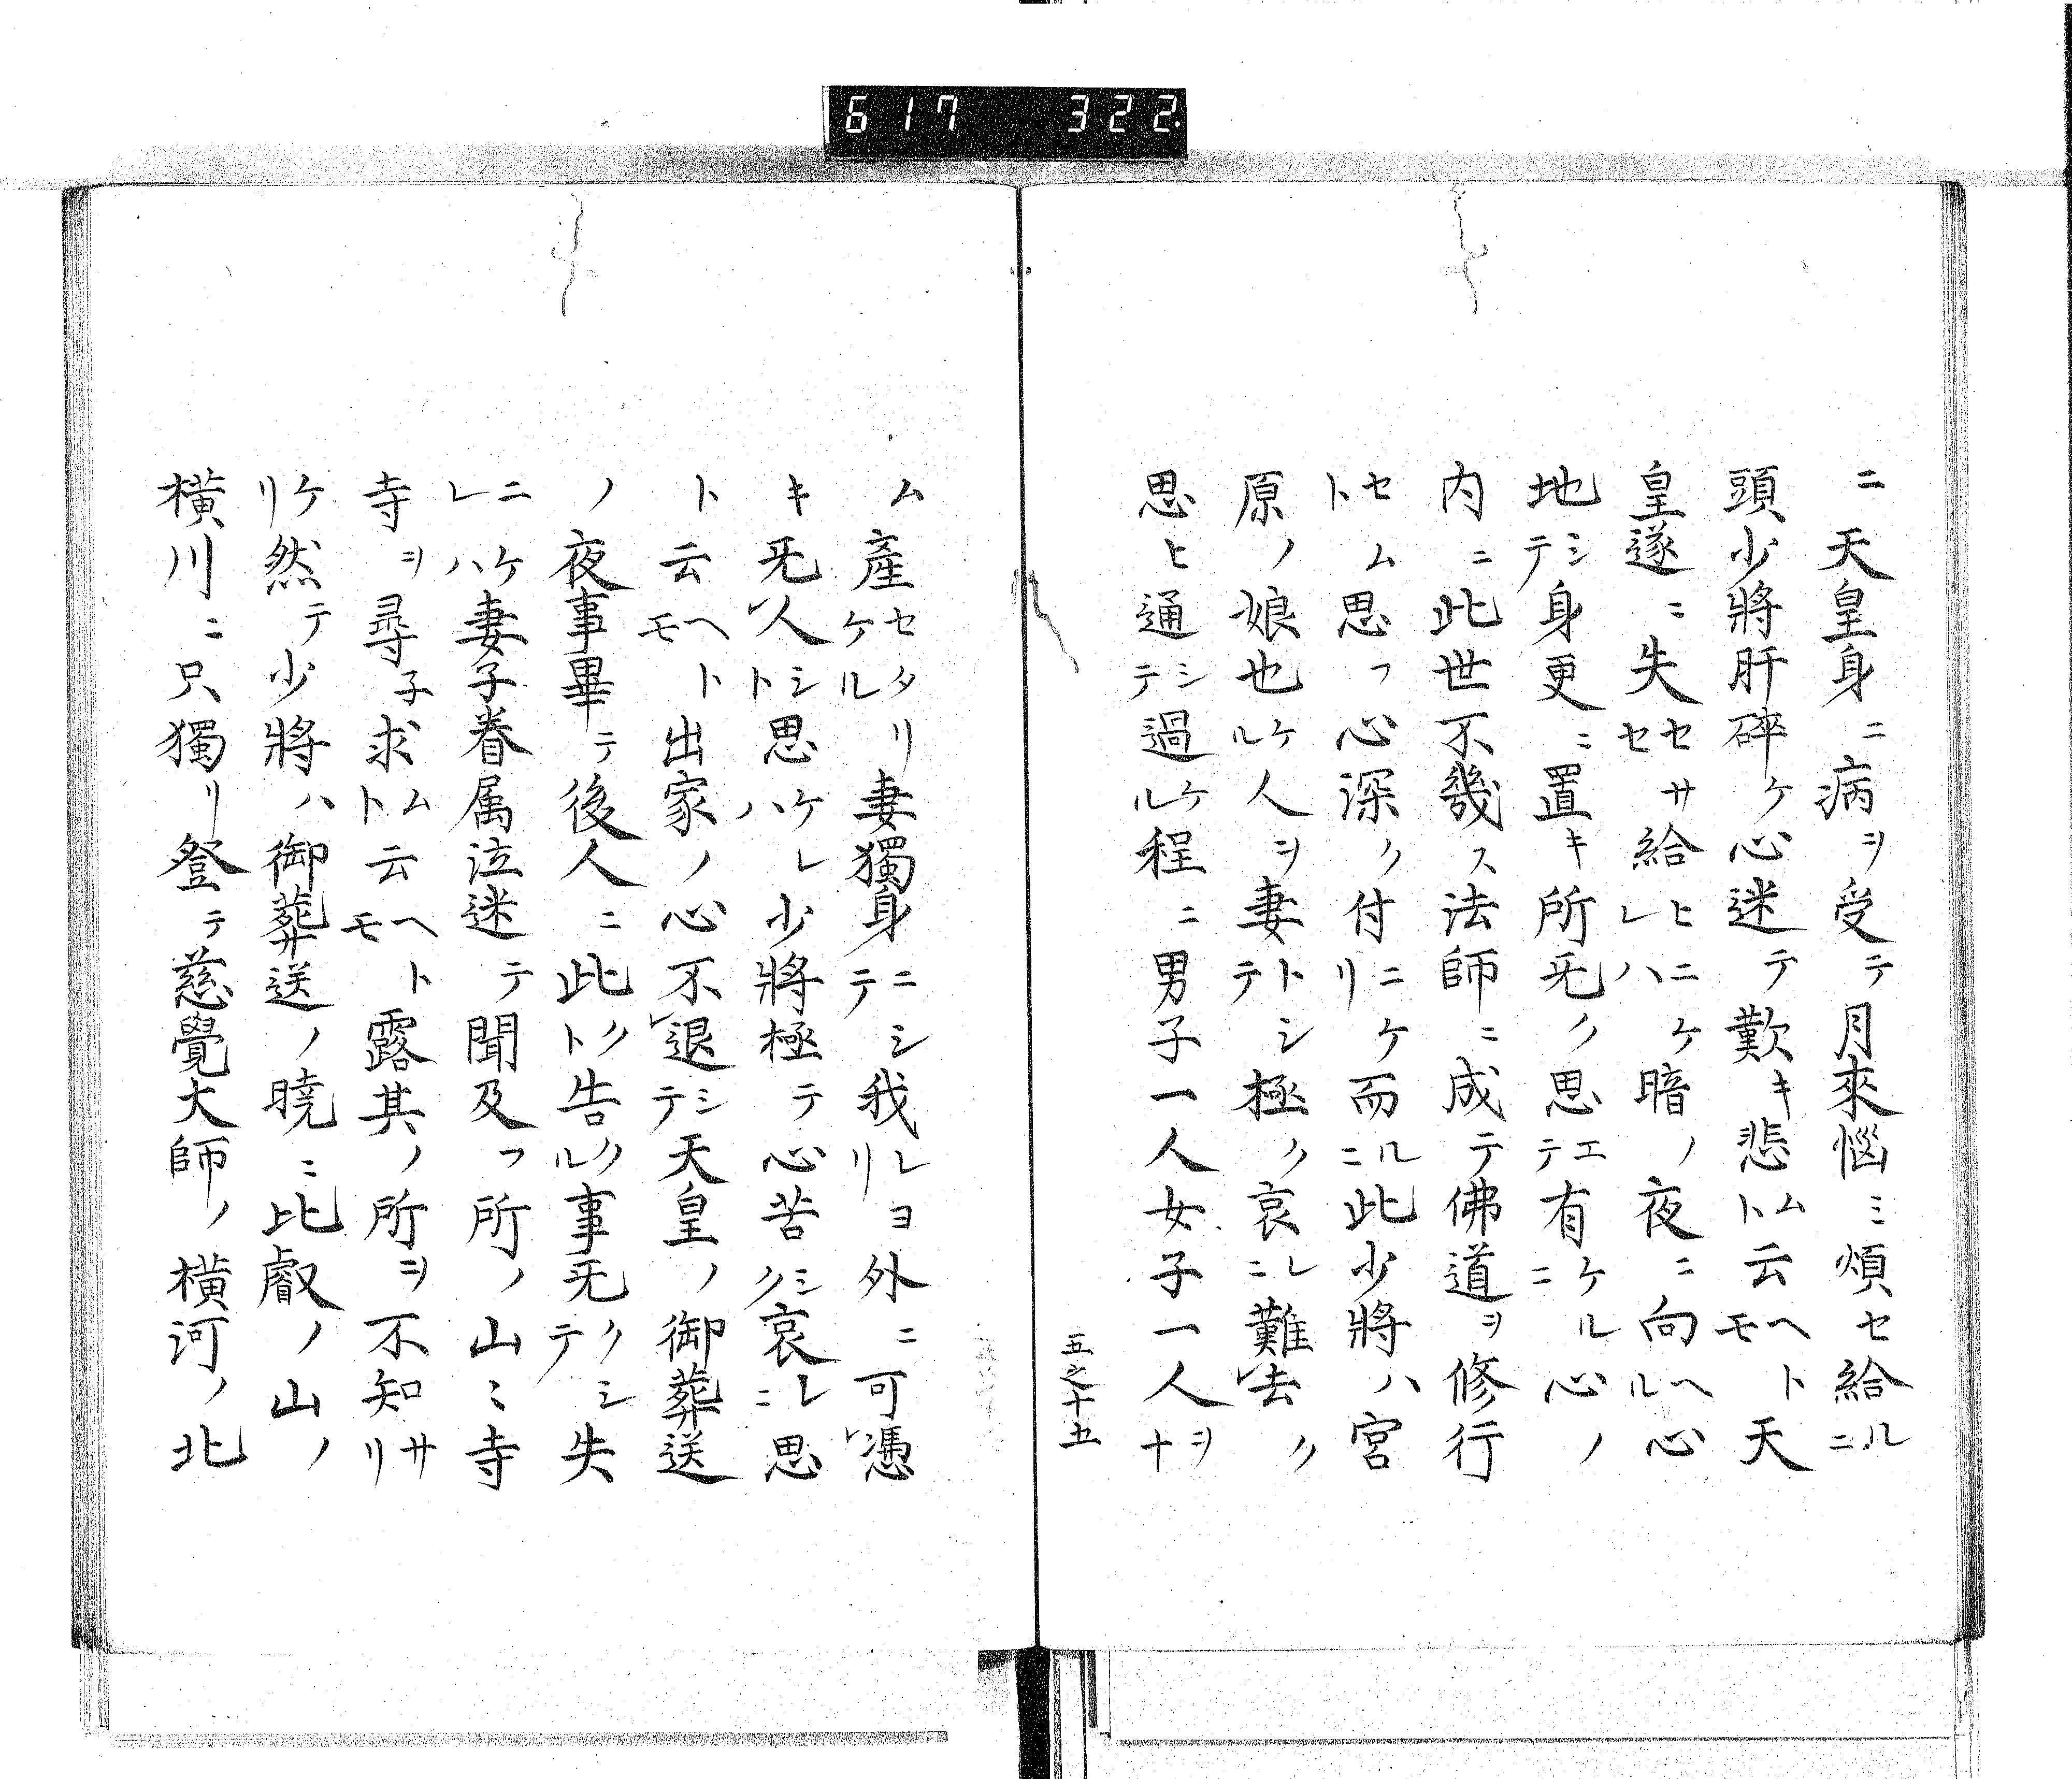 617 322
ニ天皇身ニ病ヲ受テ月來惱ミ煩セ給ルニ
頭少將肝碎ケ心迷テ歎キ悲ムト云ヘトモ天
皇遂ニ失セサセ給ヒニケレハ暗ノ夜ニ向ヘル心
地シテ身更ニ置キ所旡ク思エテ有ケルニ心ノ
内ニ此世不幾ス法師ニ成テ佛道ヲ修行
セムト思フ心深ク付ニケリ而ルニ此少將ハ宮
原ノ娘也ケル人ヲ妻トシテ極ク哀レニ難去ク
思ヒ通シテ過ケル程ニ男子一人女子一人ヲナ
五之十五
ム産セタリケル妻獨身ニシテ我レヨリ外ニ可憑
キ旡人シト思ケレハ少將極テ心苦シク哀レニ思
ト云ヘトモ出家ノ心不退シテ天皇ノ御葬送
ノ夜事畢テ後人ニ此クト告クル事旡クシテ失
ニケレハ妻子眷属泣迷テ聞及フ所ノ山ミ寺
寺ヲ尋子求ムト云ヘトモ露其ノ所ヲ不知サリ
ケリ然テ少將ハ御葬送ノ曉ニ比叡ノ山ノ
橫川ニ只獨リ登テ慈覺大師ノ橫河ノ北